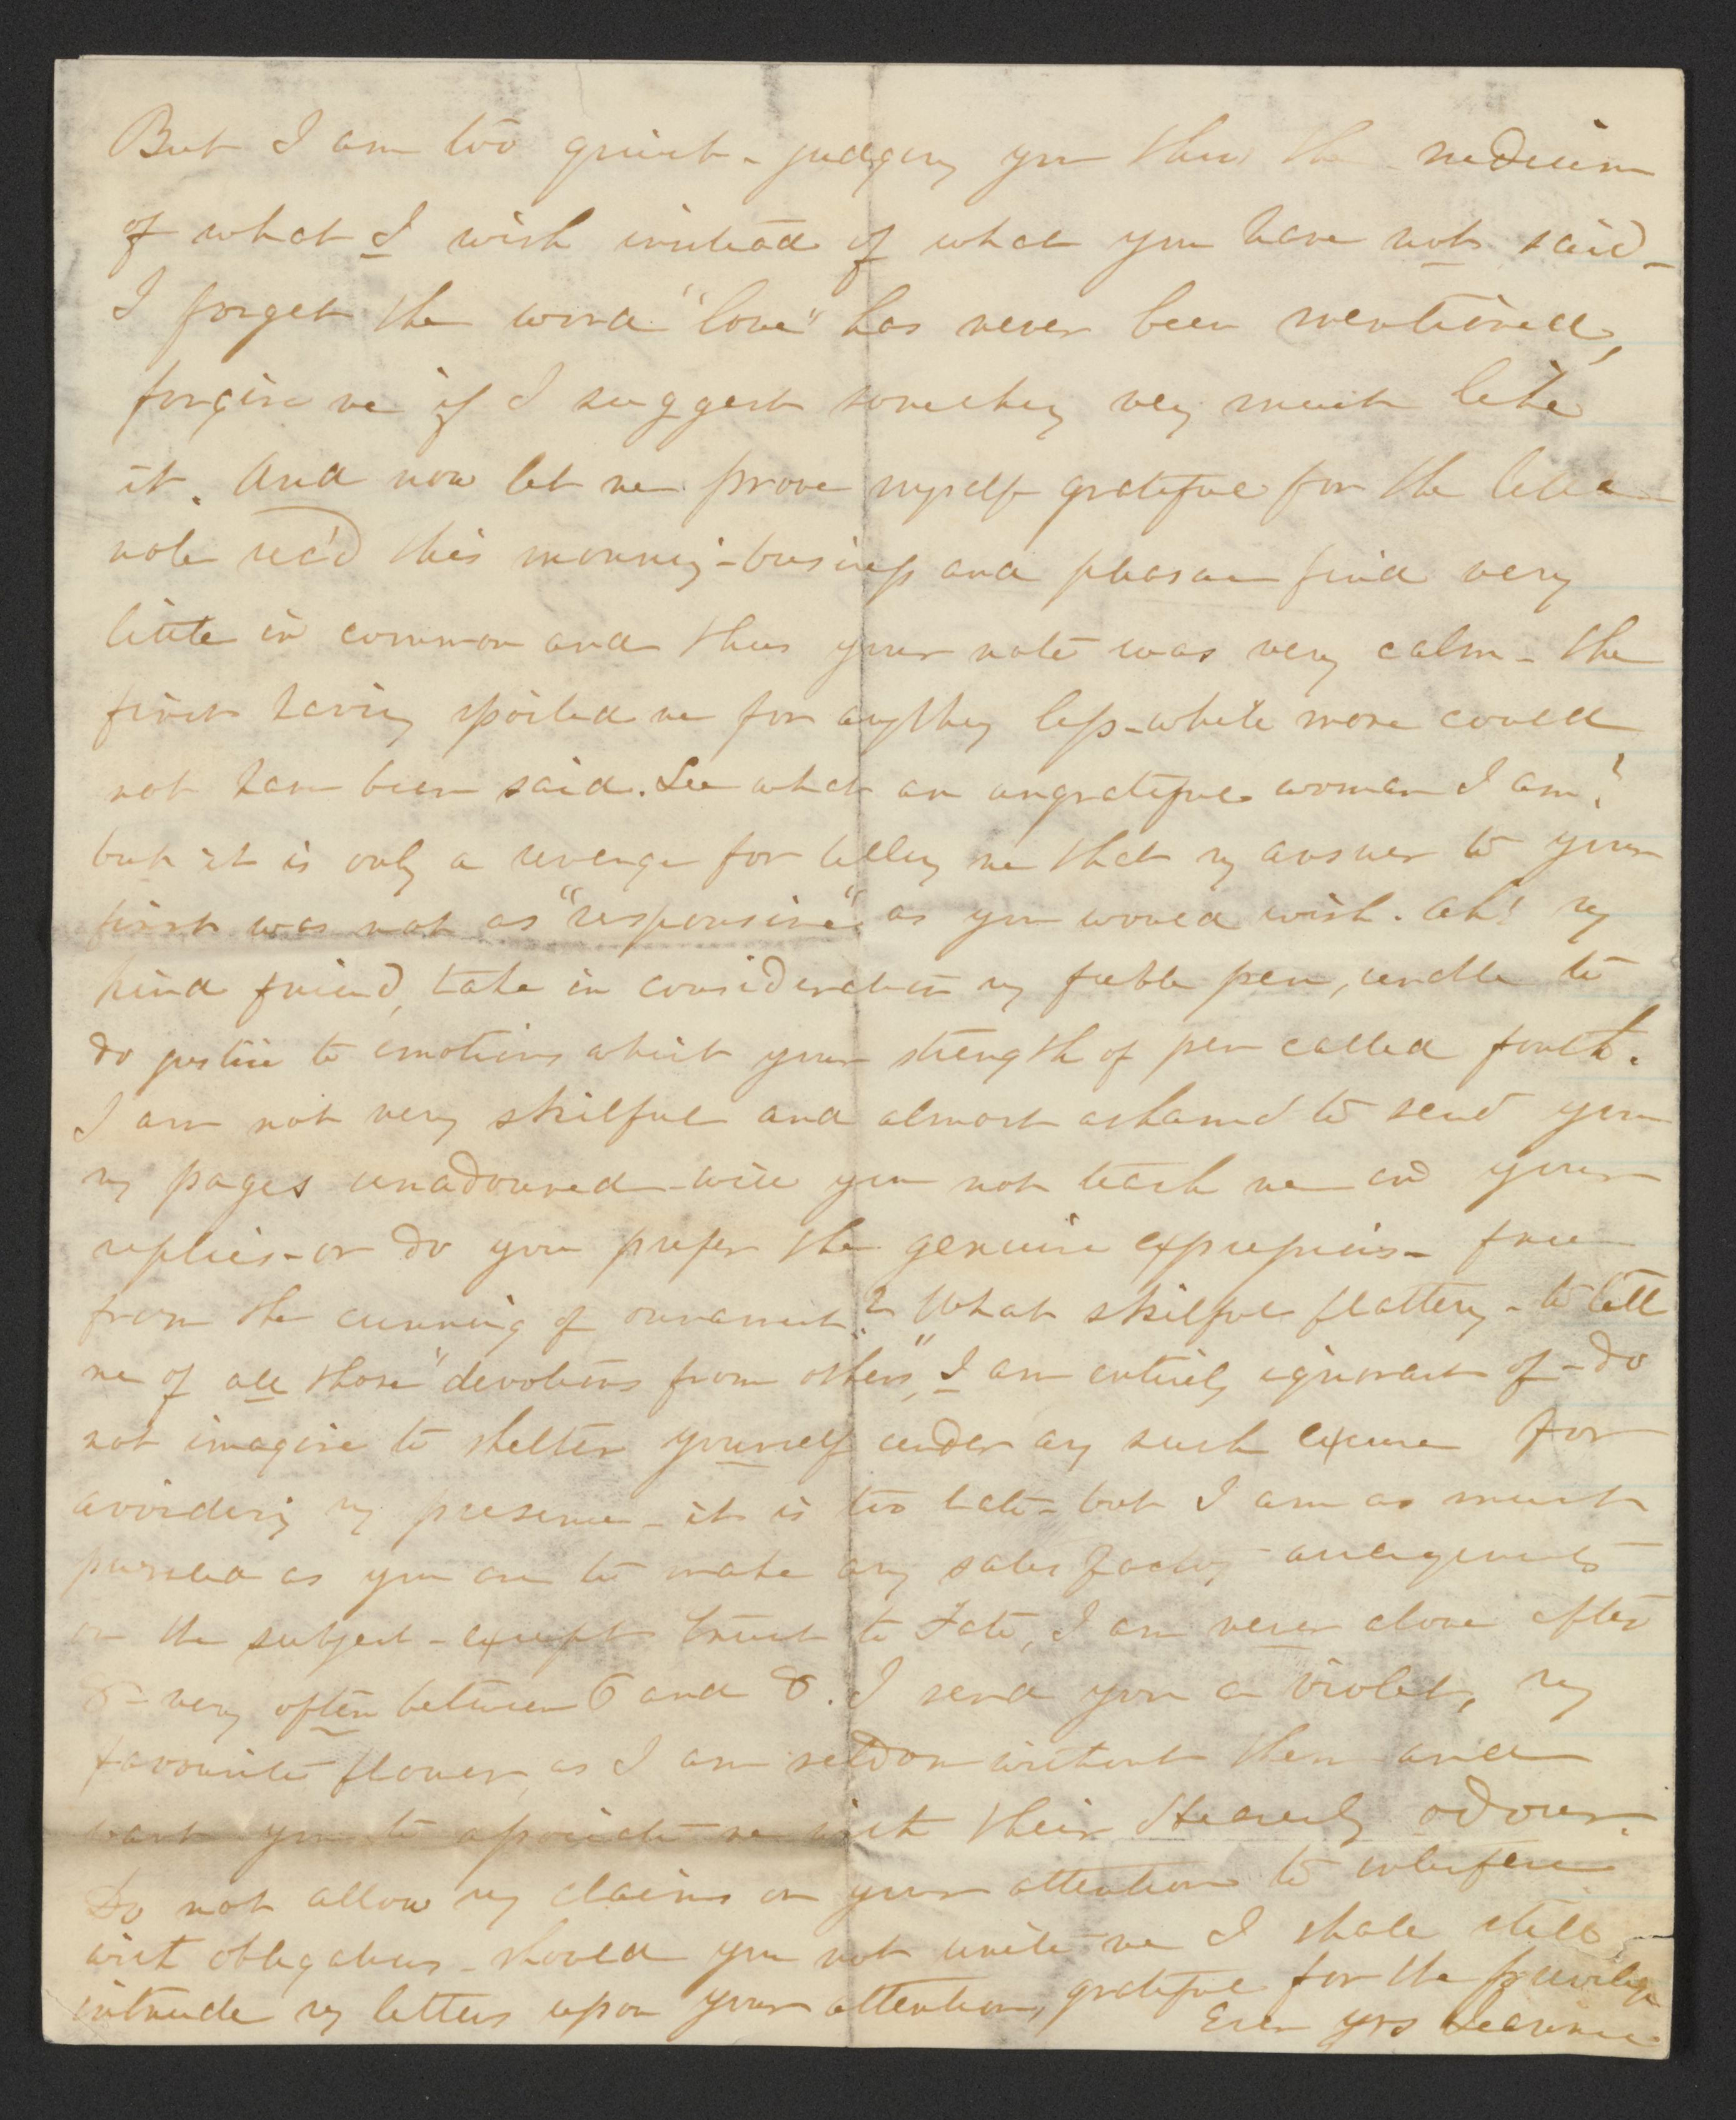 But I am too quick - judging you thro' the medium
of what I wish instead of what you have not said -
I forget the word "love" has never been mentioned,
forgive me if I suggest something very much like
it. And now let me prove myself grateful for the little
note rec'd this morning - business and pleasure find very
little in common and thus your note was very calm - the
first having spoiled me for anything less - while more could
not have been said. See what an ungrateful woman I am!
but it is only a revenge for telling me that my answer to your
first was not as "responsive" as you would wish. Ah! my
kind friend, take in consideration my feeble pen, unable to
do justice to emotions which your strength of pen called forth.
I am not very skilful and almost ashamed to send you
my pages unadorned - will you not teach me in your
replies - or do you prefer the genuine expressions - free
from the cunning of ornament? What skilful flattery - to tell
me of all those "devotions from others", I am entirely ignorant of - do
not imagine to shelter yourself under any such excuse for
avoiding my presence - it is too late - but I am as much
puzzled as you are to make any satisfactory arrangements
on the subject - except trust to Fate, I am never alone after
8 - very often between 6 and 8. I send you a violet, my
favourite flower, as I am seldom without them and
want you to associate me with their Heavenly odour.
Do not allow my claims on your attention to interfere
with obligations - should you not write me I shall still
intrude my letters upon your attention, grateful for the privilege
Ever yrs